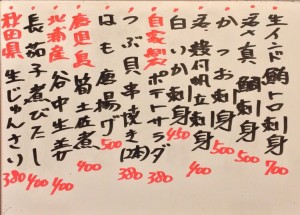 生インド鮪トロ刺身 700
活〆真鯛刺身 500
かつお刺身 500
活〆殻付帆立刺身
白いか刺身 450
自家製ポテトサラダ 380
つぶ貝串焼き(2本) 380
はも唐揚げ 500
鹿児島 筍土佐煮 400
北海産 谷中生姜 400
長茄子煮びたし 400
秋田県 生じゅんさい 380